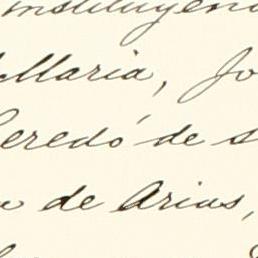 instituyen
Maria, Jo
heredó de s
de Arias,